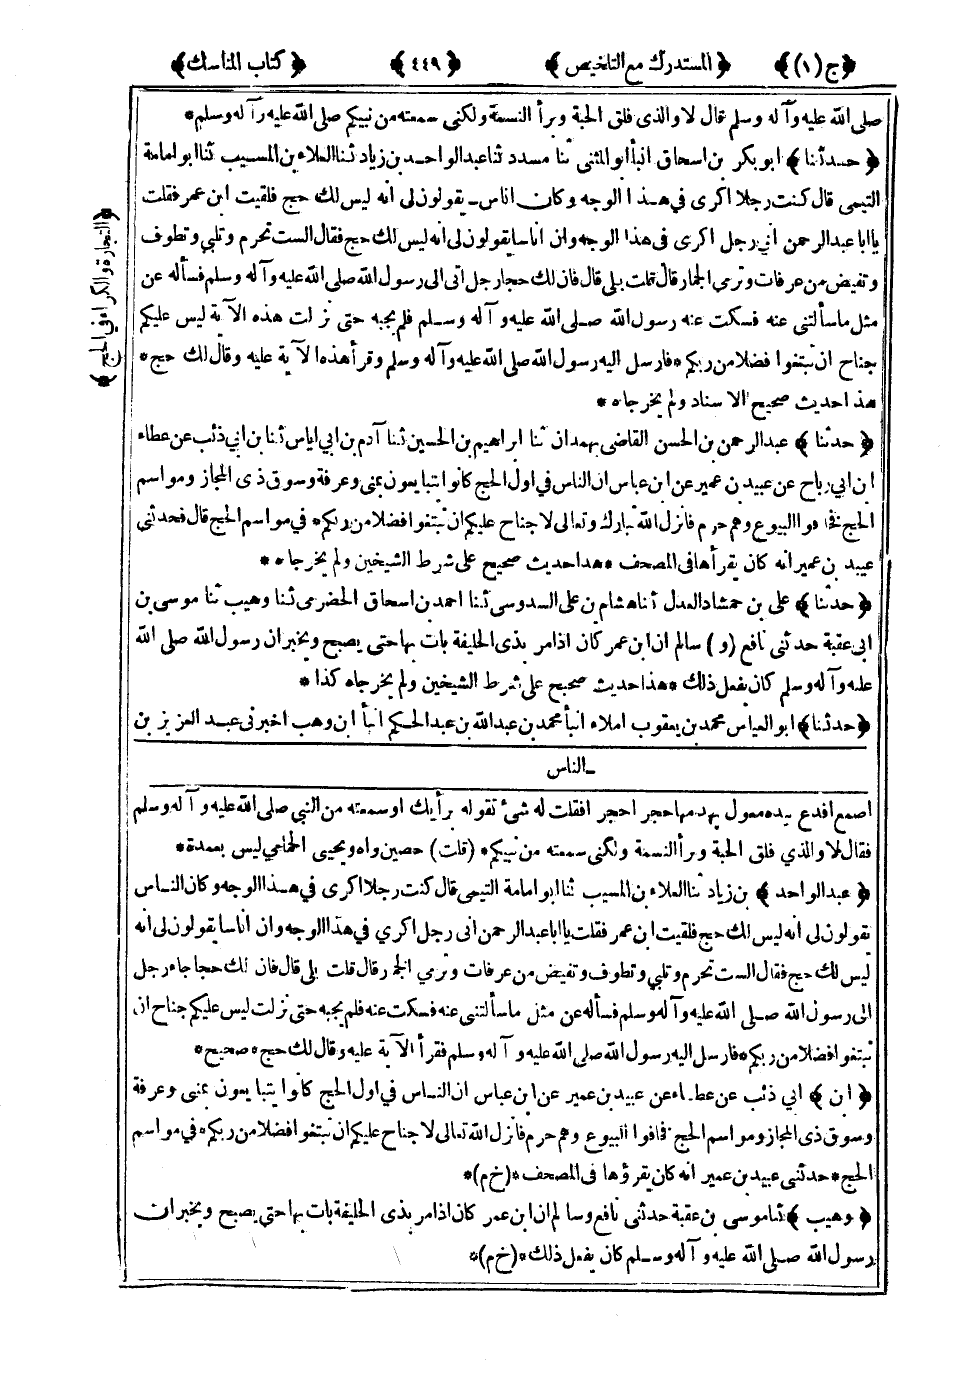 ﴿ ج (١) ﴾ ﴿ المستدرك مع التلخيص ﴾ ﴿ ٤٤٩ ﴾ ﴿ كتاب المناسك ﴾
صلى الله عليه وآله وسلم قال لا والذى فلق الحبة وبرأ النسمة ولكنى سمعته من نبيكم صلى الله عليه وآله وسلم *
﴿ حدثنا ﴾ ابو بكر بن اسحاق انبأ ابو المثنى ثنا مسدد ثنا عبد الواحد بن زياد ثنا العلاء بن المسيب ثنا ابو امامة
التيمى قال كنت رجلا اكرى فى هذا الوجه وكان اناس يقولون لى انه ليس لك حج فلقيت ابن عمر فقلت
يا ابا عبد الرحمن اني رجل اكرى فى هذا الوجه وان اناسا يقولون لى انه ليس لك حج فقال الست تحرم وتلبي وتطوف
وتفيض من عرفات وترمي الجمار قال قلت بلى قال فان لك حجا رجل اتى الى رسول الله صلى الله عليه وآله وسلم فسأله عن
مثل ما سألتنى عنه فسكت عنه رسول الله صلى الله عليه وآله وسلم فلم يجبه حتى نزلت هذه الآية ليس عليكم
جناح ان تبتغوا فضلا من ربكم * فارسل اليه رسول الله صلى الله عليه وآله وسلم وقرأ هذه الآية عليه وقال لك حج *
هذا حديث صحيح الاسناد ولم يخرجاه *
﴿ حدثنا ﴾ عبد الرحمن بن الحسن القاضى بهمدان ثنا ابراهيم بن الحسين ثنا آدم بن ابي اياس ثنا بن ابي ذئب عن عطاء
ابن ابي رباح عن عبيد بن عمير عن ابن عباس ان الناس في اول الحج كانوا يتبايعون بمنى وعرفة وسوق ذى المجاز ومواسم
الحج فخافوا البيوع وهم حرم فانزل الله تبارك وتعالى لا جناح عليكم ان تبتغوا فضلا من ربكم * في مواسم الحج قال فحدثنى
عبيد بن عمير انه كان يقرأها فى المصحف * هذا حديث صحيح على شرط الشيخين ولم يخرجاه *
﴿ حدثنا ﴾ على بن حمشاد العدل ثنا هشام بن على السدوسى ثنا احمد بن اسحاق الحضرمى ثنا وهيب ثنا موسى بن
ابى عقبة حدثنى نافع (و) سالم ان ابن عمر كان اذا مر بذى الحليفة بات بها حتى يصبح ويخبر ان رسول الله صلى الله
عليه وآله وسلم كان يفعل ذلك * هذا حديث صحيح على شرط الشيخين ولم يخرجاه كذا *
﴿ حدثنا ﴾ ابو العباس محمد بن يعقوب املاء انبأ محمد بن عبد الله بن عبد الحكم انبأ ابن وهب اخبرنى عبد العزيز بن
﴿ التجارة والكراء في الحج ﴾
الناس
اصمع افدع بيده معول يهدمها حجر احجر افقلت له شئ تقوله برأيك او سمعته من النبي صلى الله عليه وآله وسلم
فقال لا والذي فلق الحبة وبرأ النسمة ولكنى سمعته من نبيكم * (قلت) حصين واه ويحيى الحمامي ليس بعمدة *
﴿ عبد الواحد ﴾ بن زياد ثنا العلاء بن المسيب ثنا ابو امامة التيمى قال كنت رجلا اكرى في هذا الوجه وكان الناس
يقولون لى انه ليس لك حج فلقيت ابن عمر فقلت يا ابا عبد الرحمن انى رجل اكري في هذا الوجه وان اناسا يقولون لى انه
ليس لك حج فقال الست تحرم وتلبي وتطوف وتفيض من عرفات وترمي الجمر قال قلت بلى قال فان لك حجا جاء رجل
الى رسول الله صلى الله عليه وآله وسلم فسأله عن مثل ما سألتنى عنه فسكت عنه فلم يجبه حتى نزلت ليس عليكم جناح ان
تبتغوا فضلا من ربكم * فارسل اليه رسول الله صلى الله عليه وآله وسلم فقرأ الآية عليه وقال لك حج * صحيح *
﴿ ابن ﴾ ابي ذئب عن عطاء عن عبيد بن عمير عن ابن عباس ان الناس في اول الحج كانوا يتبايعون بمنى وعرفة
وسوق ذى المجاز ومواسم الحج فخافوا البيوع وهم حرم فانزل الله تعالى لا جناح عليكم ان تبتغوا فضلا من ربكم * في مواسم
الحج * حدثنى عبيد بن عمير انه كان يقرؤها فى المصحف * (خ م) *
﴿ وهيب ﴾ ثنا موسى بن عقبة حدثنى نافع وسالم ان ابن عمر كان اذا مر بذى الحليفة بات بها حتى يصبح ويخبر ان
رسول الله صلى الله عليه وآله وسلم كان يفعل ذلك * (خ م) *